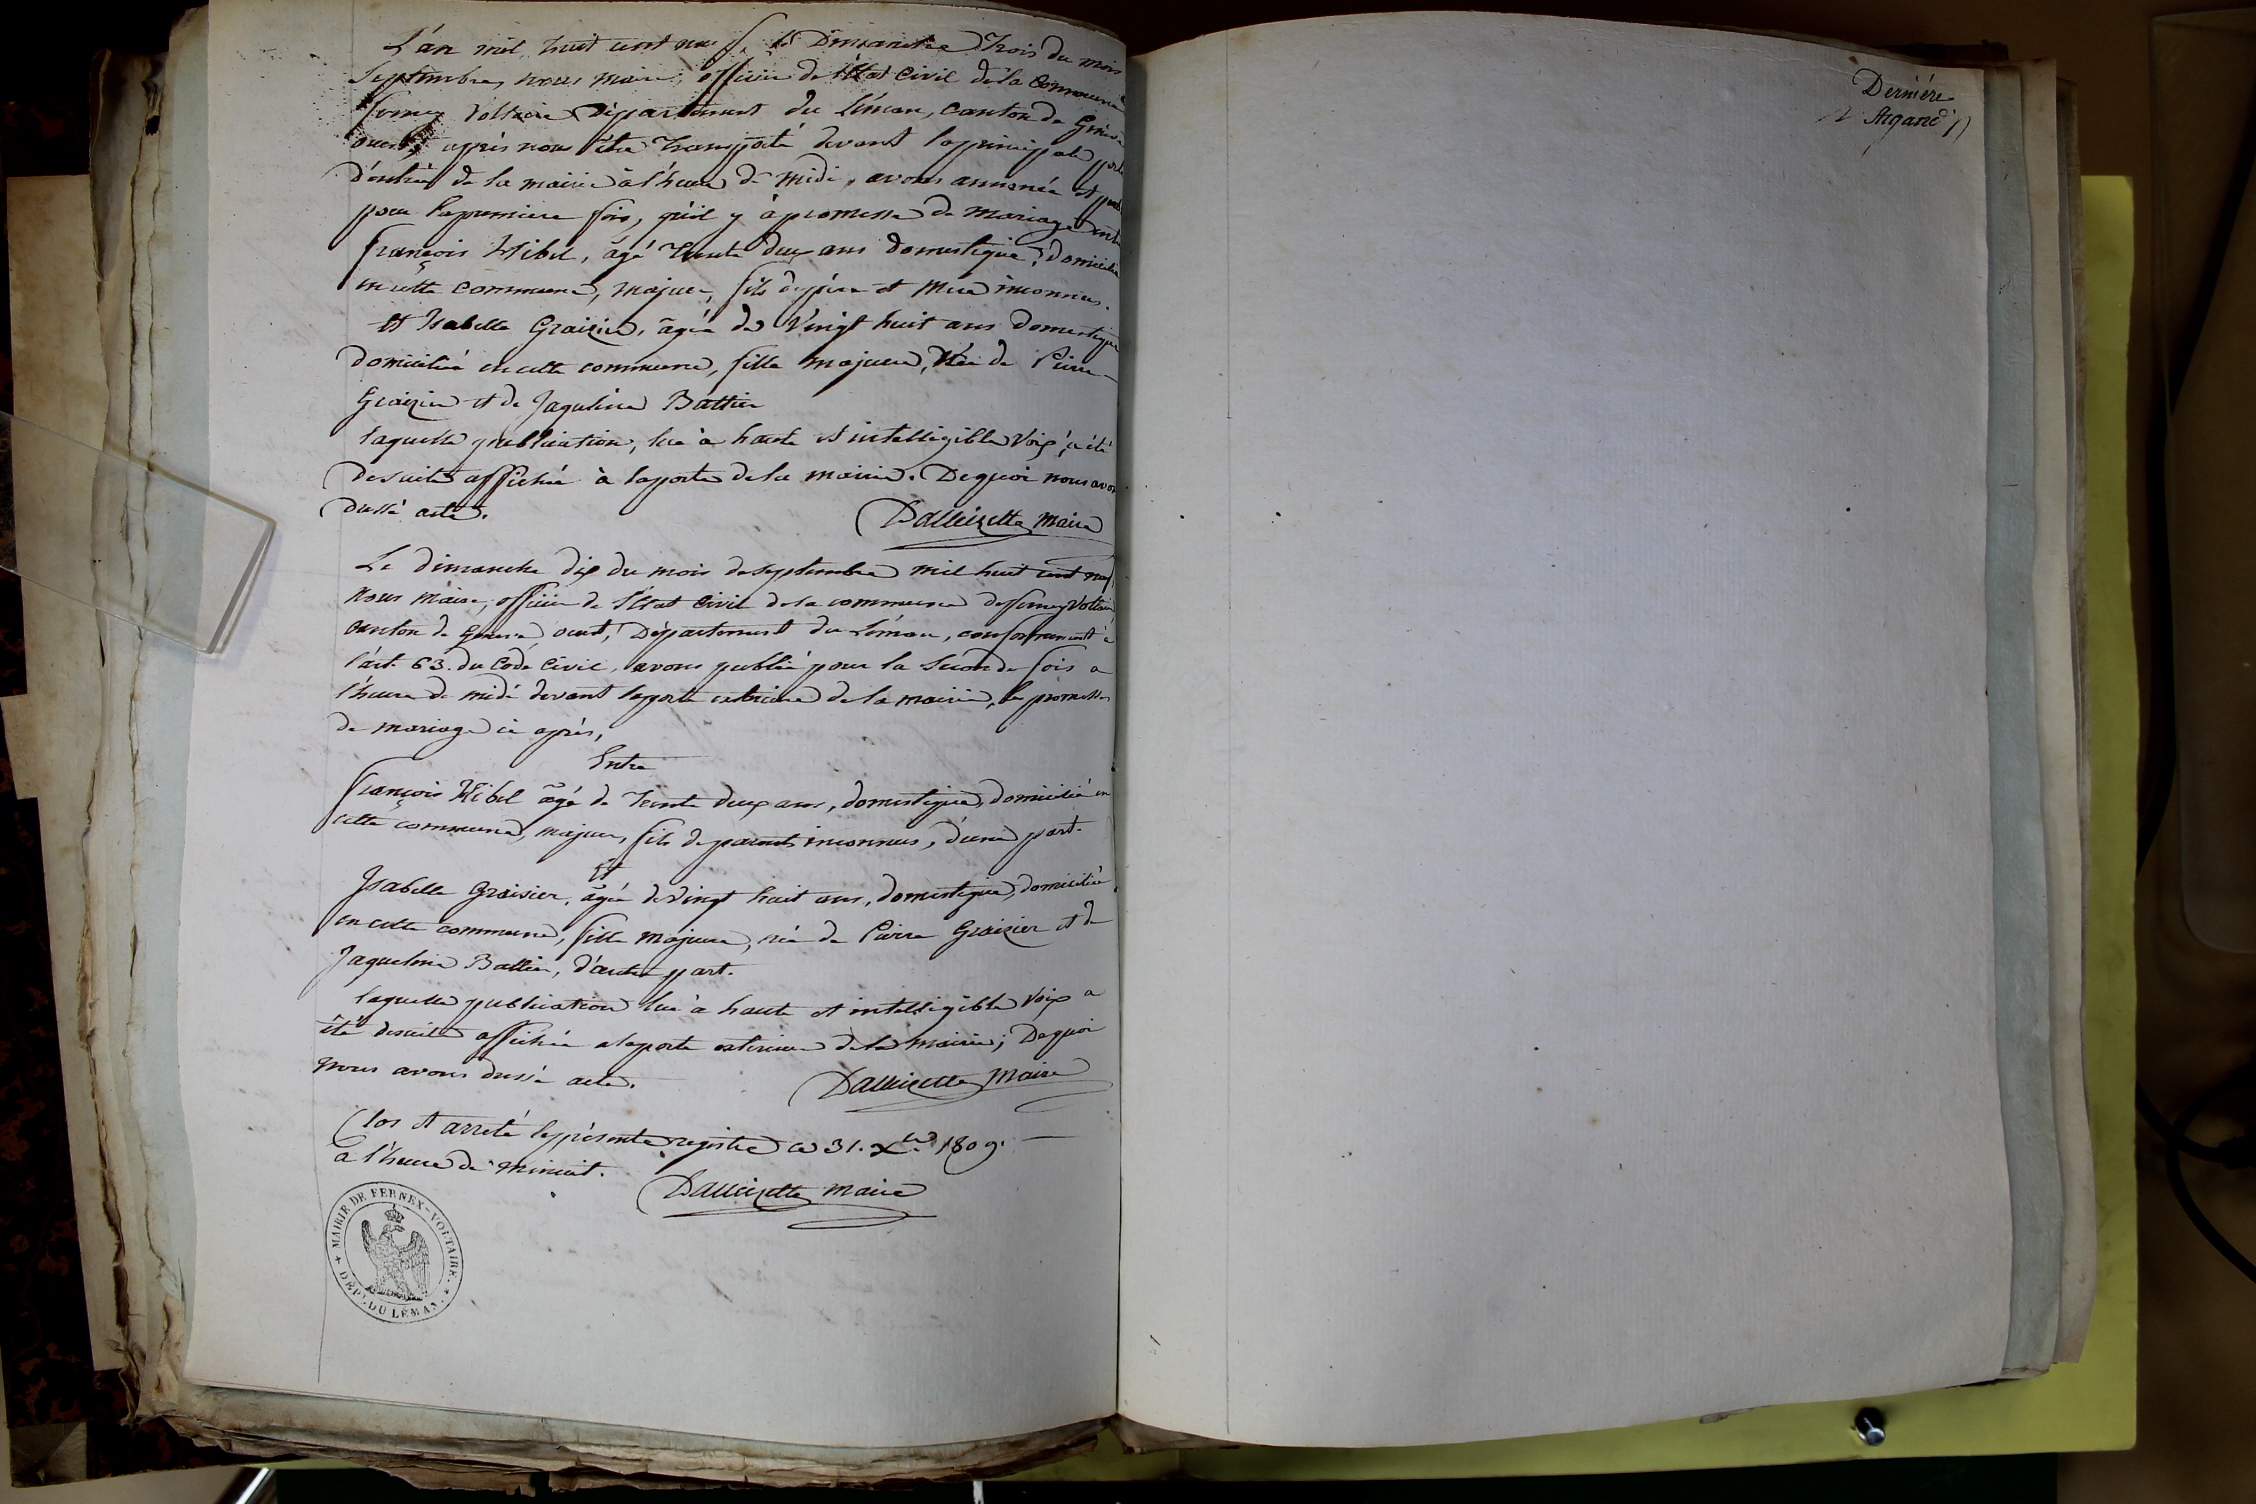 L'an mil huit cent neuf, le Dimanche Trois du mois
Septembre, nous maire, officier de l'Etat Civil de la Commune
ferney Voltaire Département du Léman, Canton de Genève
ouest, après nous être Transporté devant la principale porte
d'entrée de la mairie à l'heure de midi, avons annoncé et
pour la premiere fois, qu'il y à promesse de mariage entre
françois Hibel, âgé Trente deux ans Domestique, Domicilié
en cette commune, majeur, fils de père et Mere inconnus.
et Isabelle Graizier, âgée de Vingt huit ans Domestique
Domiciliée en cette commune, fille majeure, Née de Pierre
Graizier et de Jaqueline Battier
laquelle publication, lue à haute et intelligible Voix, a été
de suite affichée à la porte de la mairie. De quoi nous avons
dressé acte. Dallizette maire
Le dimanche dix du mois de septembre mil huit cent neuf,
Nous Maire, officier de l'Etat Civil de la commune de ferney Voltaire
canton de Geneve ouest, Département du Léman, conformement à
l'art. 63. du Code Civil, avons publié pour la seconde fois a
l'heure de midi devant la porte exterieure de la mairie, la promesse
de mariage ci après,
Entre
françois Hibel âgé de Trente deux ans, domestique, domicilié en
cette commune, majeur, fils de parents inconnus, d'une part.
Et
Isabelle Graisier, âgée de Vingt huit ans, domestique, domiciliée
en cette commune, fille majeure, née de Pierre Graizier et de
Jaqueline Battier, d'autre part.
laquelle publication lue à haute et intelligible Voix a
été de suite affichée a la porte exterieure de la mairie; De quoi
nous avons dressé acte. Dallizette Maire
Clos et arreté le présente registre ce 31. Xbre 1809.
à l'heure de minuit.
Dallizette maire
MAIRIE DE FERNEX-VOLTAIRE.
DEPt. DU LÉMAN.
Derniére
Argand